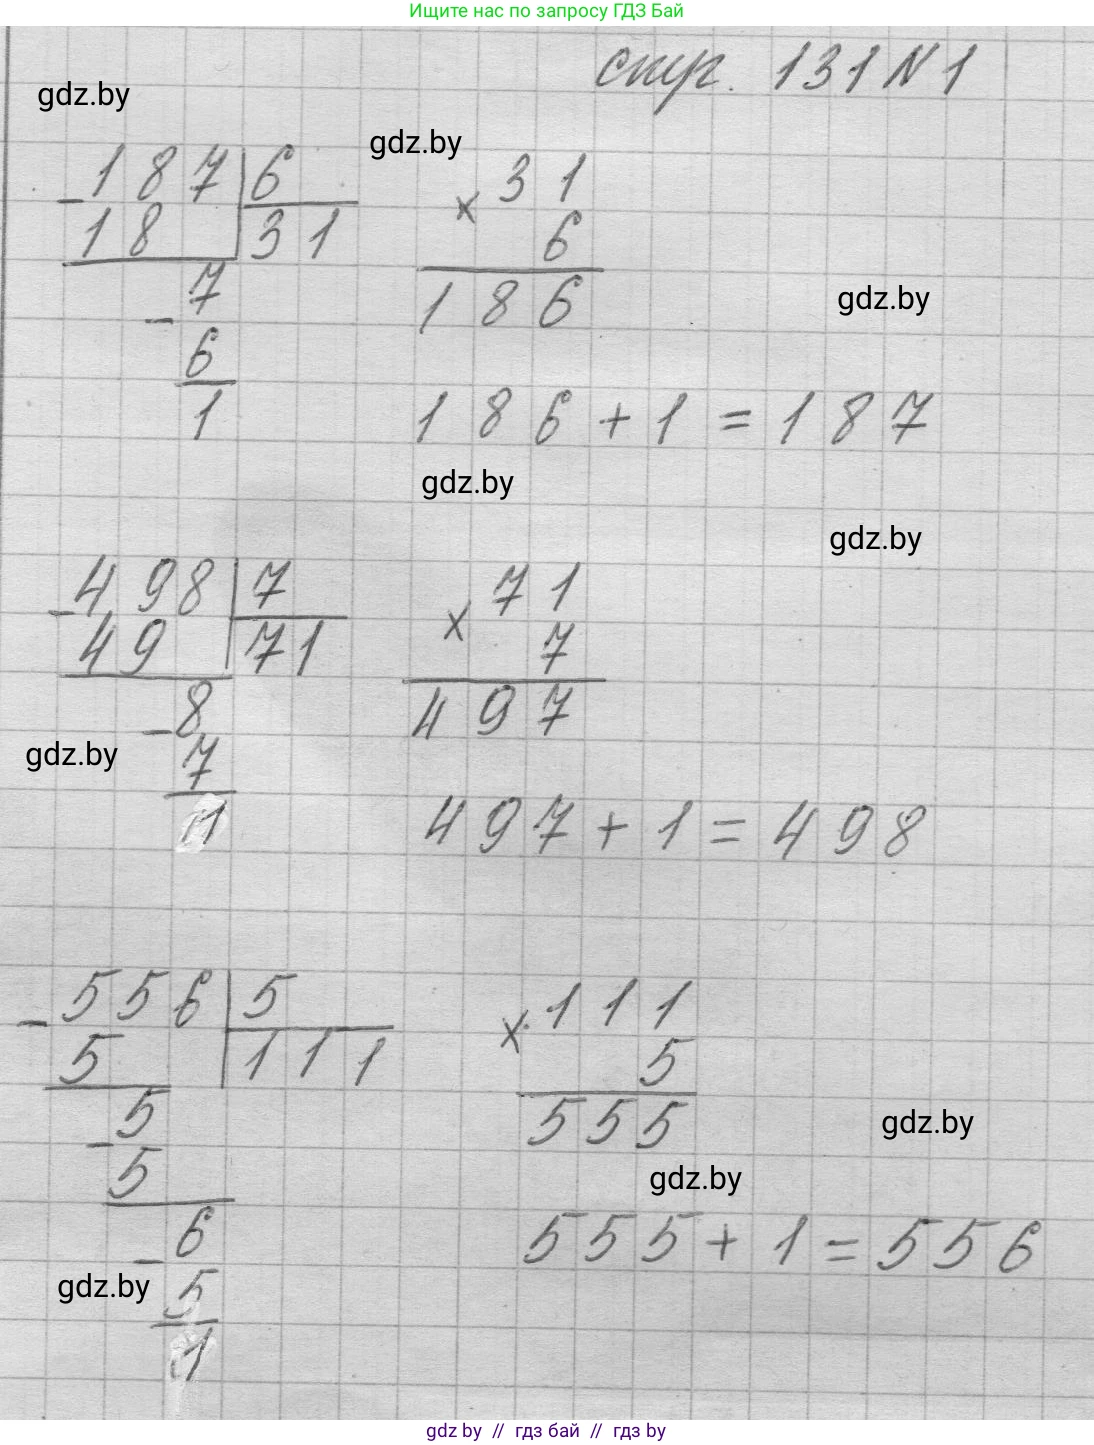 Ищите нас по запросу ГДЗ Бай
стр. 131 N 1
gdz.by
gdz.by
-187 | 6
18 | 31
-7
6
1
× 31
6
186
gdz.by
186 + 1 = 187
gdz.by
gdz.by
-498 | 7
49 | 71
-8
7
1
× 71
7
497
gdz.by
497 + 1 = 498
-556 | 5
5 | 111
-5
5
-6
5
1
× 111
5
555
gdz.by
gdz.by
555 + 1 = 556
gdz.by
gdz by // гдз бай // гдз by